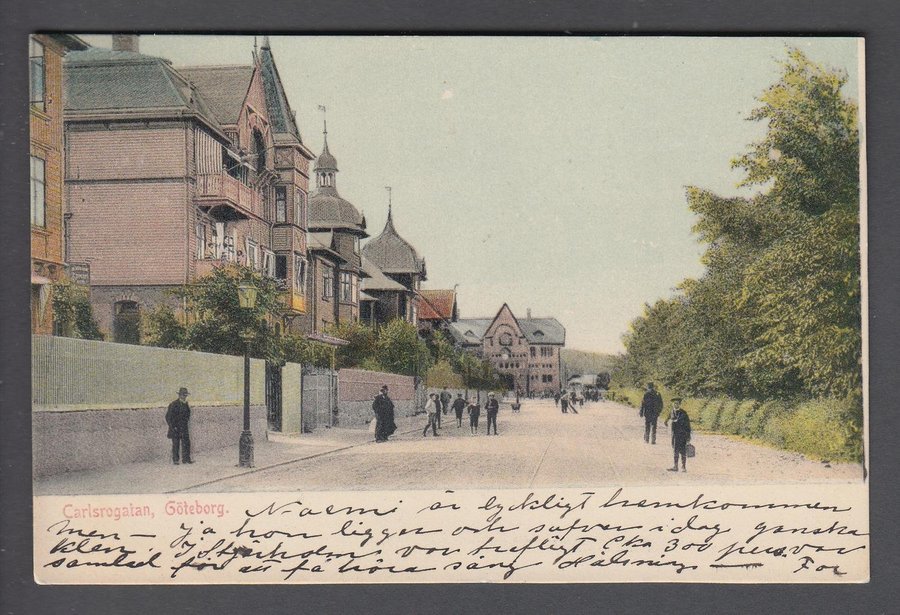 Carlsrogatan, Göteborg.
Naemi är lyckligt hemkommen
men — ja hon ligger och sofver i dag ganska
klen. I Stockholm var häftigt c:ka 300 pers. var
samlad för att få höra sång Hälsning — For